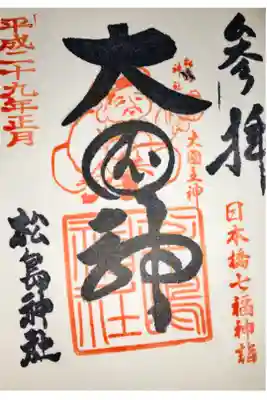 参拝
日本橋七福神詣
大国主神
大国神
平成二十九年正月
松島神社